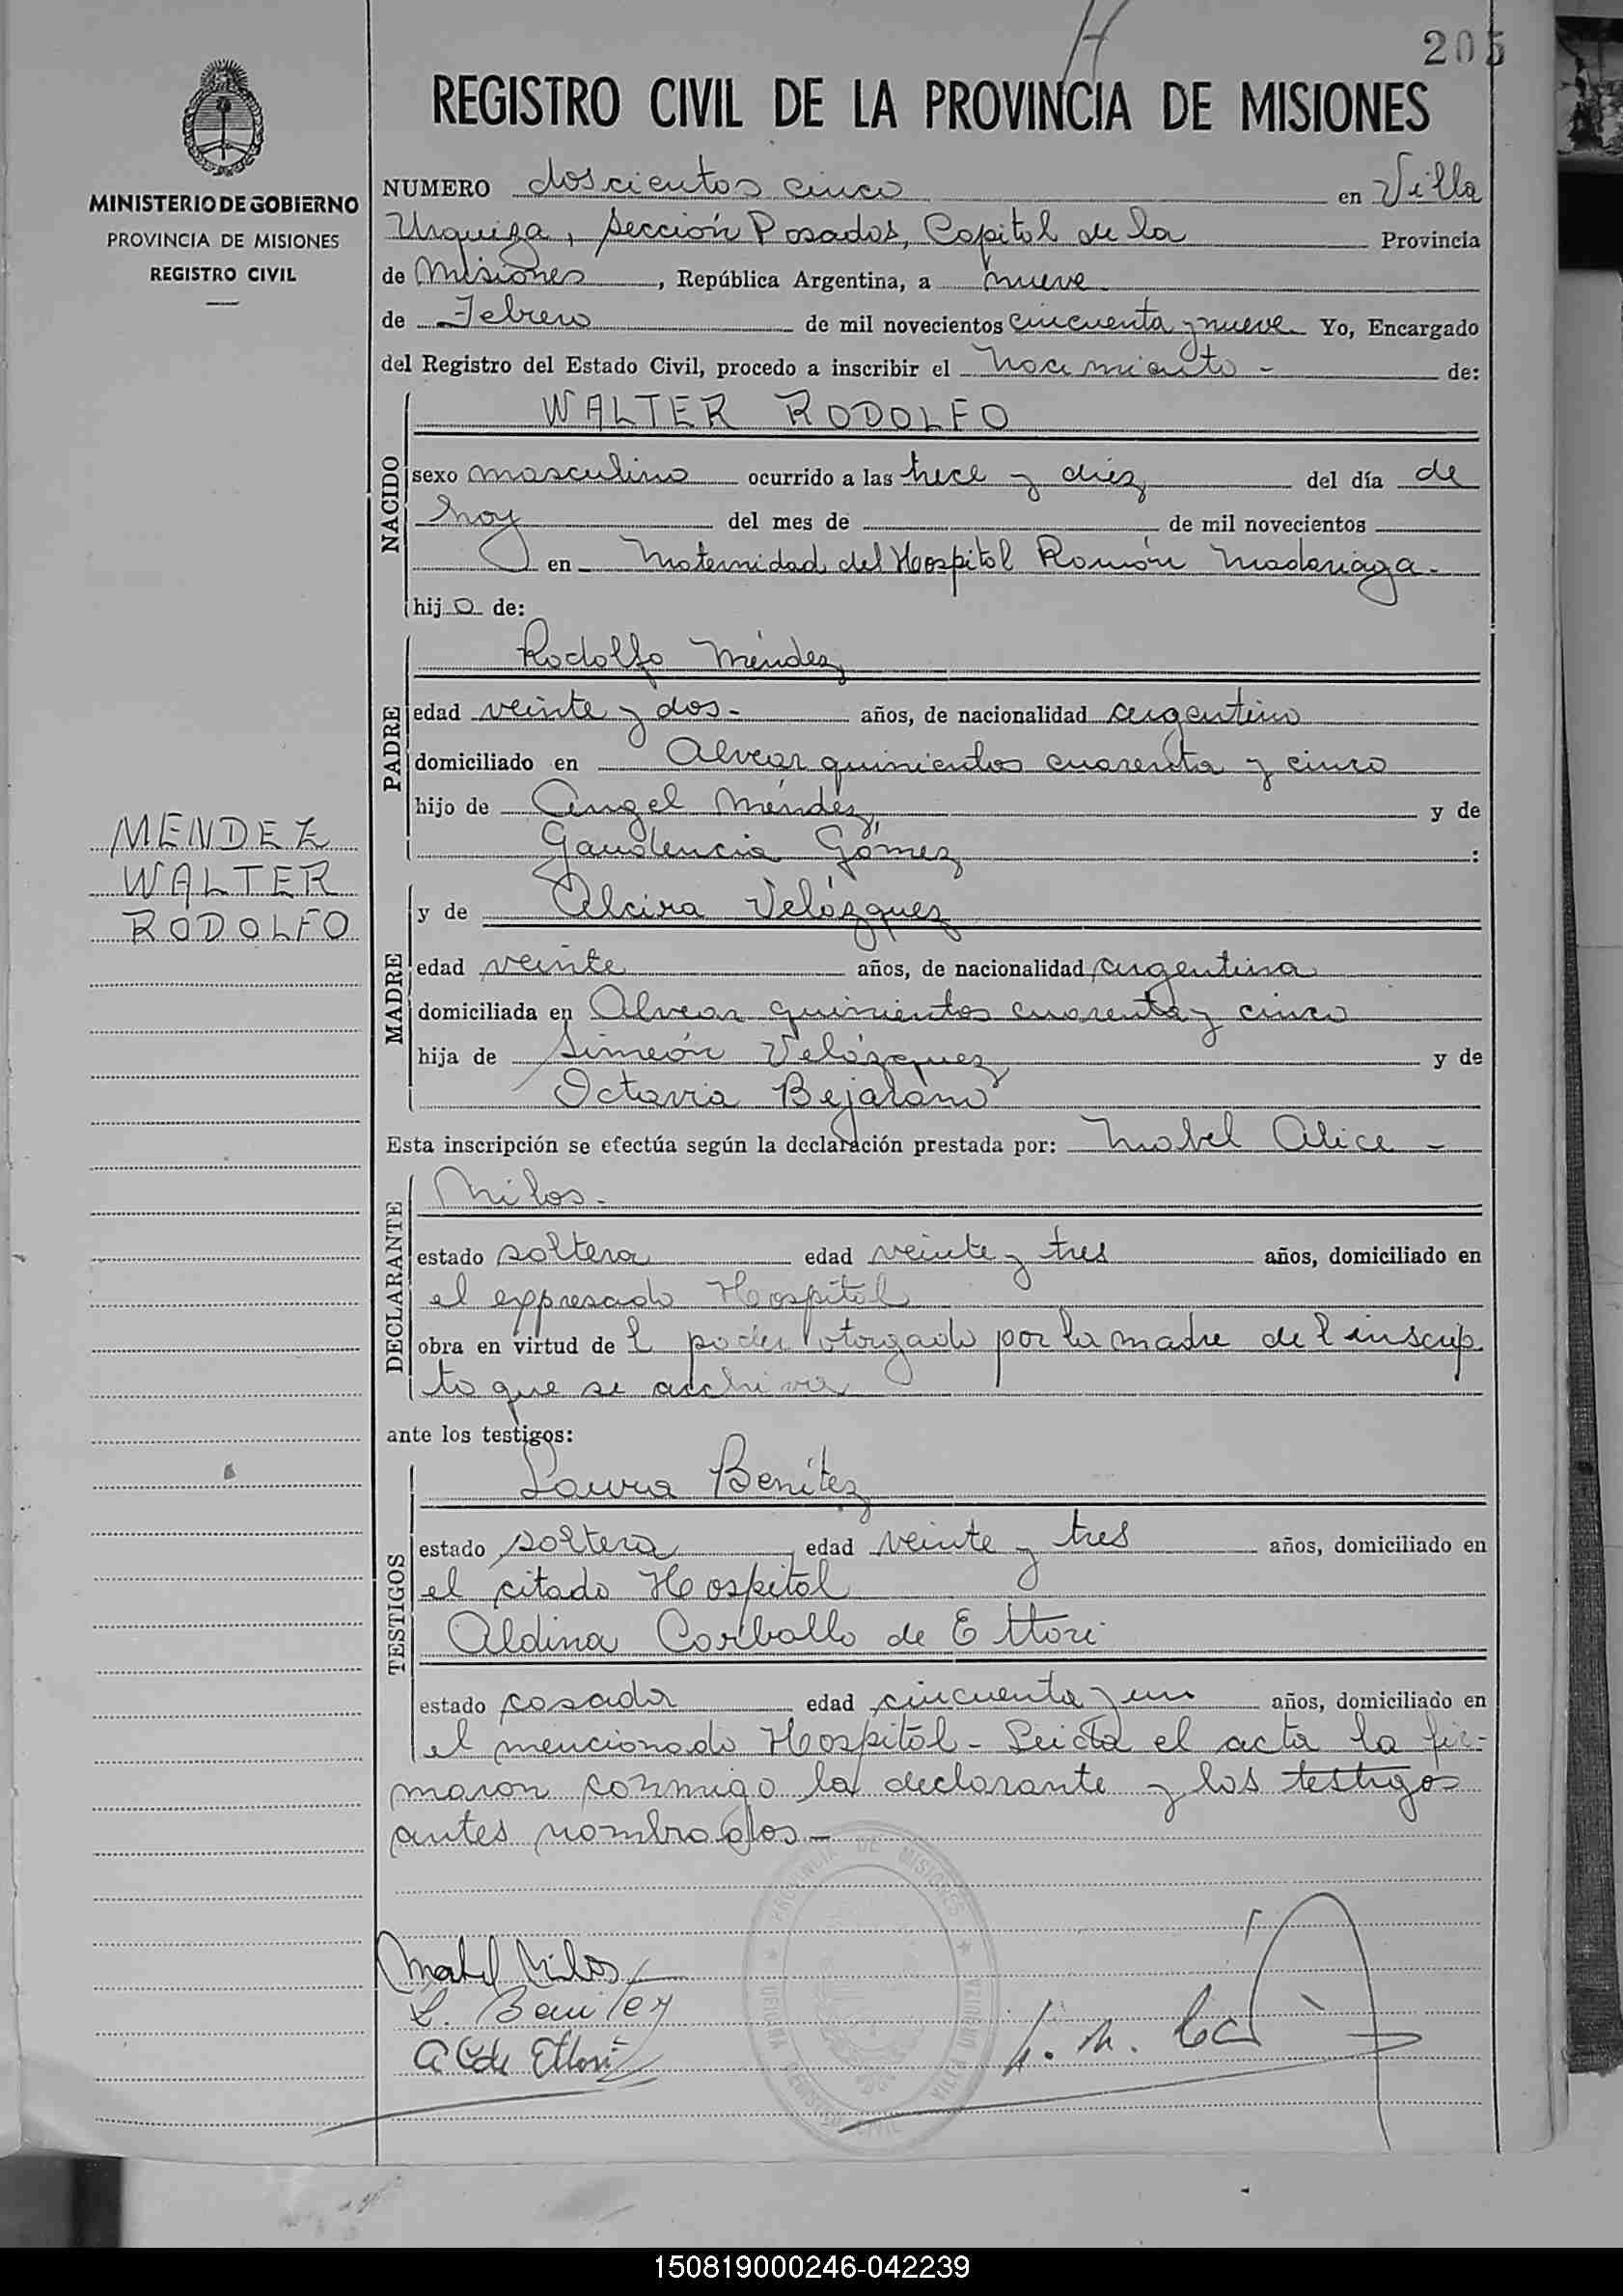 205
REGISTRO CIVIL DE LA PROVINCIA DE MISIONES
MINISTERIO DE GOBIERNO
PROVINCIA DE MISIONES
REGISTRO CIVIL
NUMERO doscientos cinco en Villa
Urquiza, Sección Posadas, Capital de la Provincia
de Misiones, República Argentina, a nueve
de Febrero de mil novecientos cincuenta y nueve Yo, Encargado
del Registro del Estado Civil, procedo a inscribir el nacimiento - de:
NACIDO
WALTER RODOLFO
sexo masculino ocurrido a las trece y diez del día de
hoy del mes de de mil novecientos
en Maternidad del Hospital Ramón Madariaga.
hijo de:
PADRE
Rodolfo Méndez
edad veinte y dos - años, de nacionalidad argentino
domiciliado en Alvear quinientos cuarenta y cinco
hijo de Angel Méndez, y de
Gaudencia Gómez :
MENDEZ
WALTER
RODOLFO
MADRE
y de Alcira Velázquez
edad veinte años, de nacionalidad argentina
domiciliada en Alvear quinientos cuarenta y cinco
hija de Simeón Velázquez y de
Octavia Bejarano
Esta inscripción se efectúa según la declaración prestada por: Mabel Alice -
DECLARANTE
Milos.
estado soltera edad veinte y tres años, domiciliado en
el expresado Hospital
obra en virtud de l poder otorgado por la madre del inscrip
to que se archiva
ante los testigos:
TESTIGOS
Laura Benítez
estado soltera edad veinte y tres años, domiciliado en
el citado Hospital
Aldina Carballo de Ettori
estado casada edad cincuenta y un años, domiciliado en
el mencionado Hospital - Leida el acta la fir-
maron conmigo la declarante y los testigos
antes nombrados -
PROVINCIA DE MISIONES
REGISTRO CIVIL
VILLA URQUIZA
Mabel Milos
L. Benitez
A C de Ettori
150819000246-042239